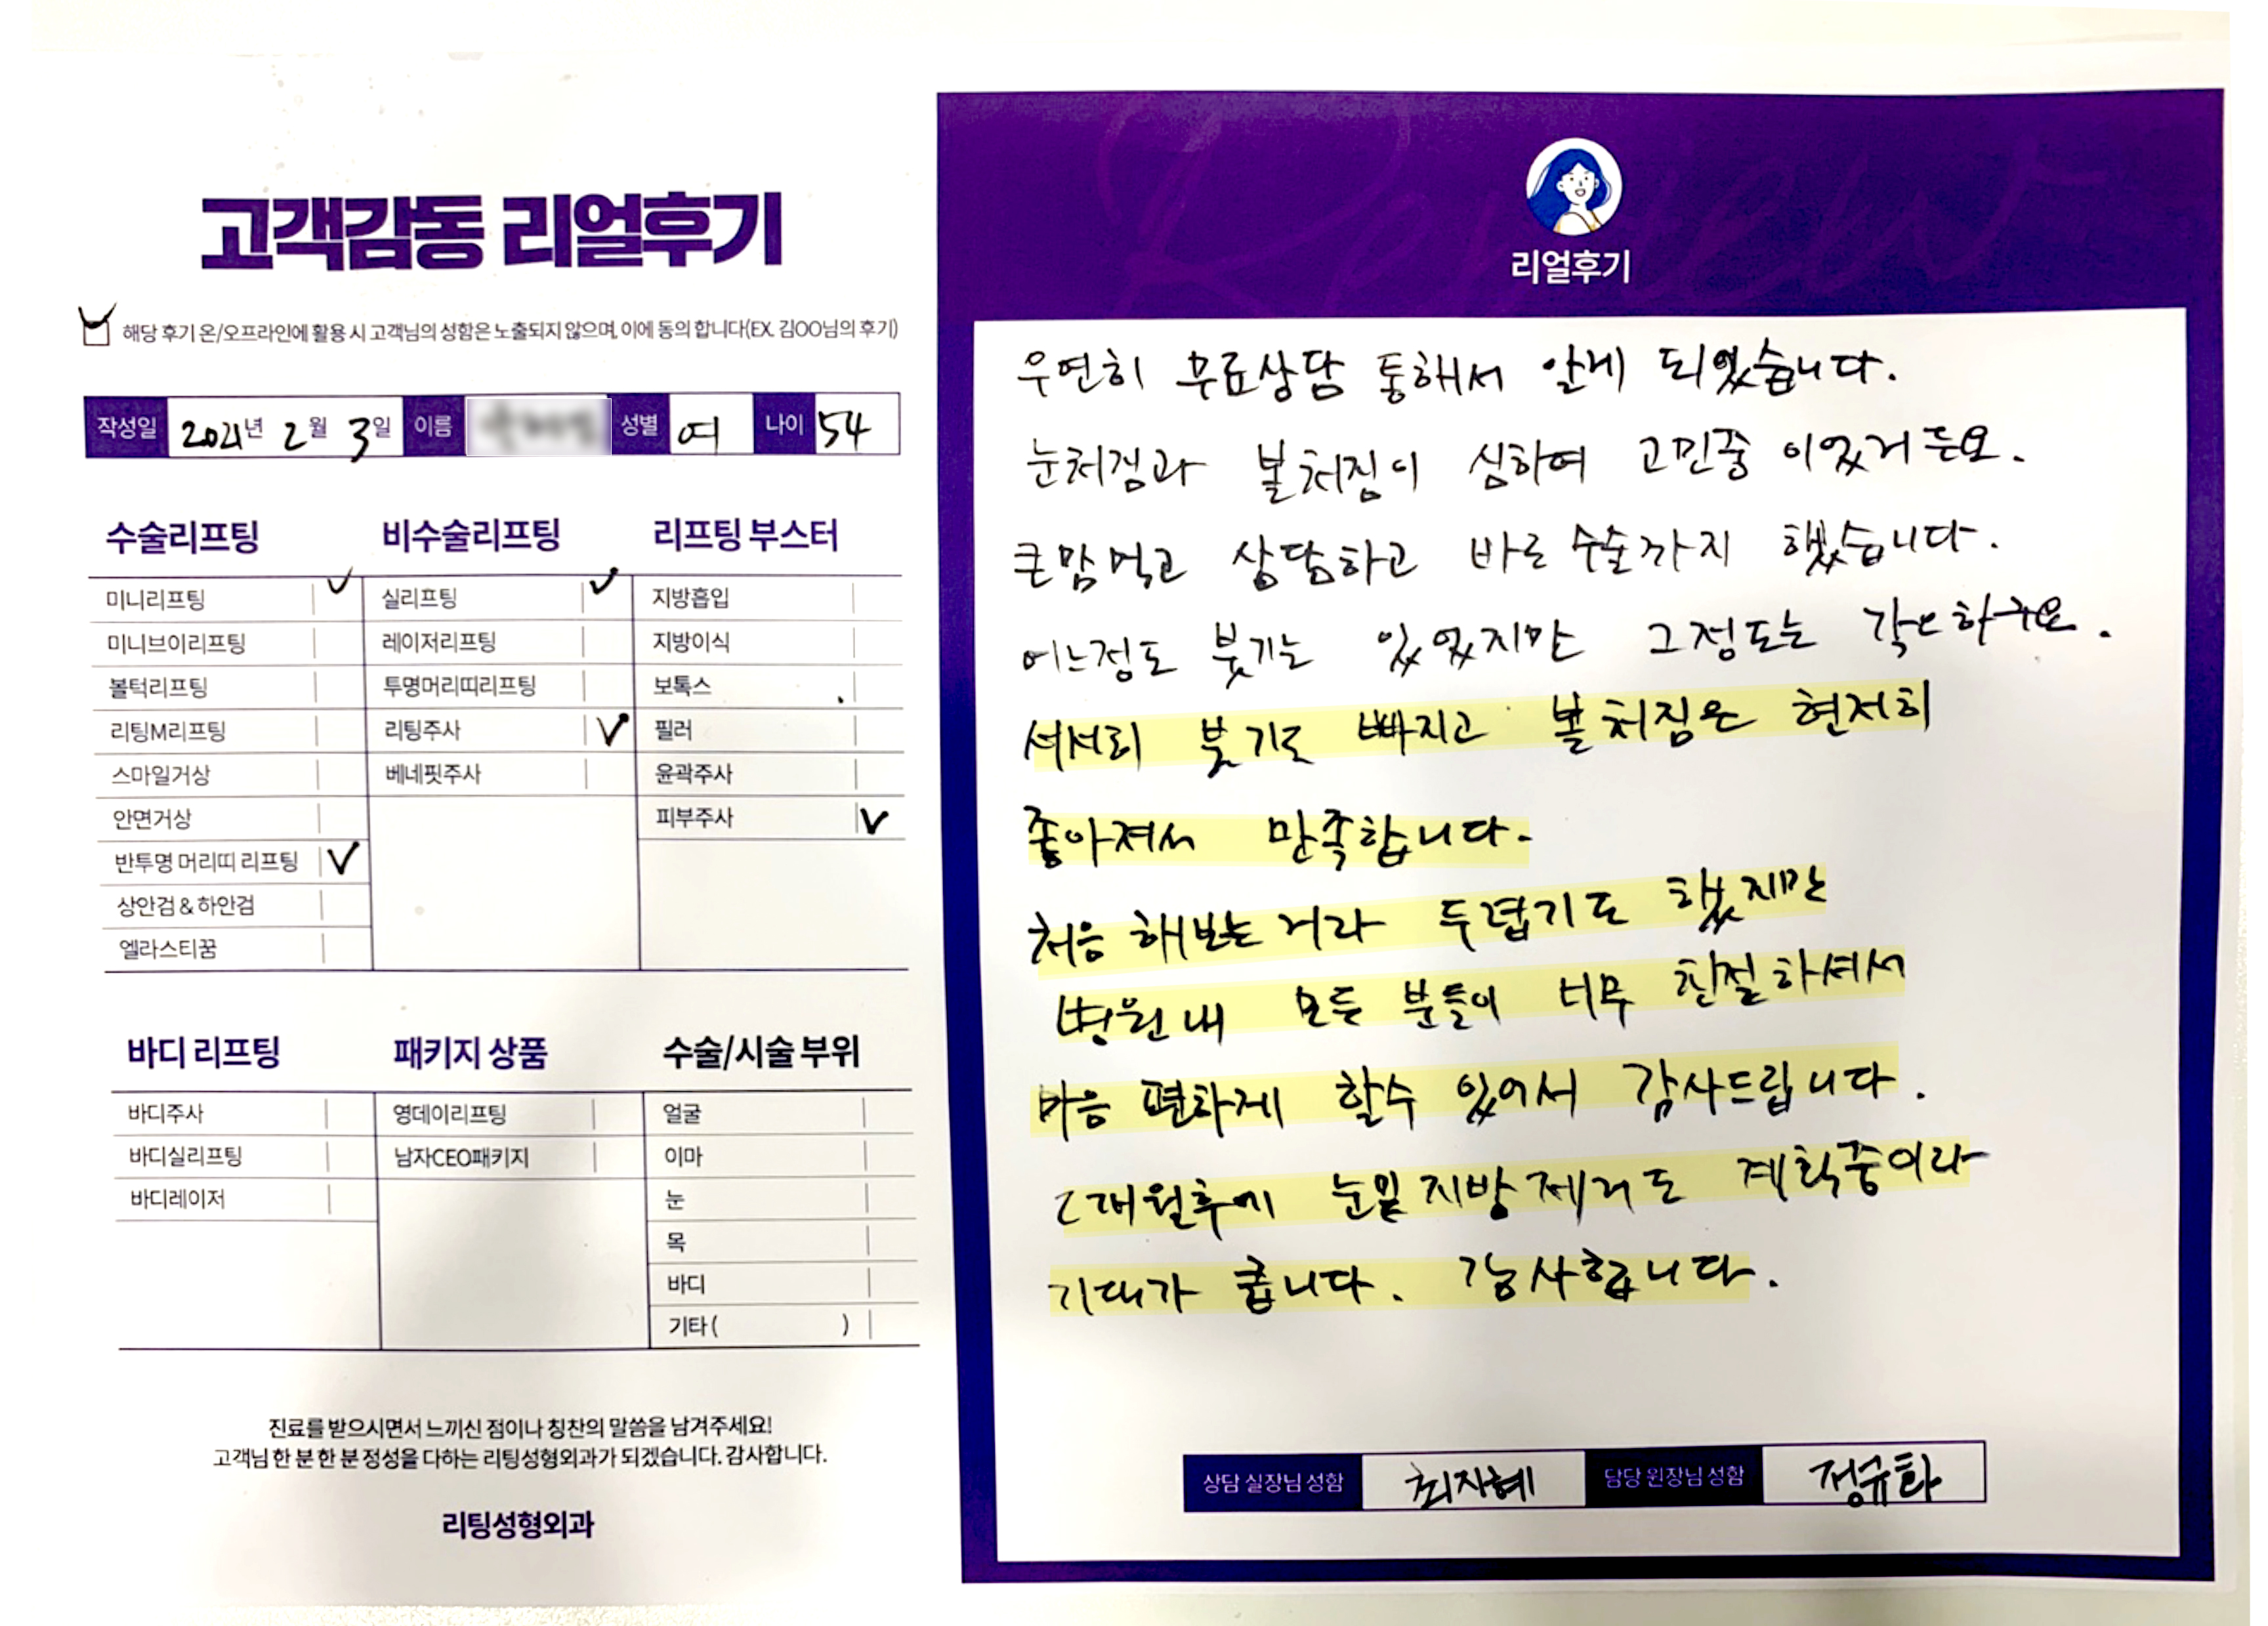 고객감동 리얼후기
해당 후기 온/오프라인에 활용 시 고객님의 성함은 노출되지 않으며, 이에 동의 합니다(EX. 김OO님의 후기)
작성일 2021년 2월 3일 이름 성별 여 나이 54
수술리프팅
미니리프팅
미니브이리프팅
볼턱리프팅
리팅M리프팅
스마일거상
안면거상
반투명 머리띠 리프팅
상안검 & 하안검
엘라스티꿈
비수술리프팅
실리프팅
레이저리프팅
투명머리띠리프팅
리팅주사
베네핏주사
리프팅 부스터
지방흡입
지방이식
보톡스
필러
윤곽주사
피부주사
바디 리프팅
바디주사
바디실리프팅
바디레이저
패키지 상품
영데이리프팅
남자CEO패키지
수술/시술 부위
얼굴
이마
눈
목
바디
기타 ( )
진료를 받으시면서 느끼신 점이나 칭찬의 말씀을 남겨주세요!
고객님 한 분 한 분 정성을 다하는 리팅성형외과가 되겠습니다. 감사합니다.
리팅성형외과
Review
리얼후기
우연히 무료상담 통해서 알게 되었습니다.
눈처짐과 볼처짐이 심하여 고민중 이었거든요.
큰맘먹고 상담하고 바로 수술까지 했습니다.
어느정도 붓기는 있었지만 그정도는 각오하구요.
서서히 붓기도 빠지고 볼처짐은 현저히
좋아져서 만족합니다.
처음 해보는 거라 두렵기도 했지만
병원내 모든 분들이 너무 친절하셔서
마음 편하게 할수 있어서 감사드립니다.
2개월후에 눈밑지방제거도 계획중이라
기대가 큽니다. 감사합니다.
상담 실장님 성함 최지혜 담당 원장님 성함 정규화